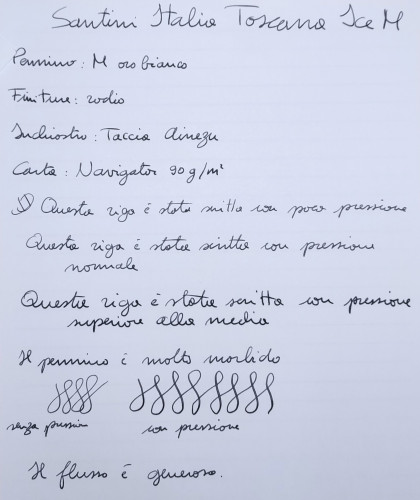 Santini Italia Toscana Ice M
Pennino: M oro bianco
Finiture: rodio
Inchiostro: Taccia Ainezu
Carta: Navigator 90 g/m²
Questa riga è stata scritta con poca pressione
Questa riga è stata scritta con pressione
normale
Questa riga è stata scritta con pressione
superiore alla media
Il pennino è molto morbido
senza pressione con pressione
Il flusso è generoso.